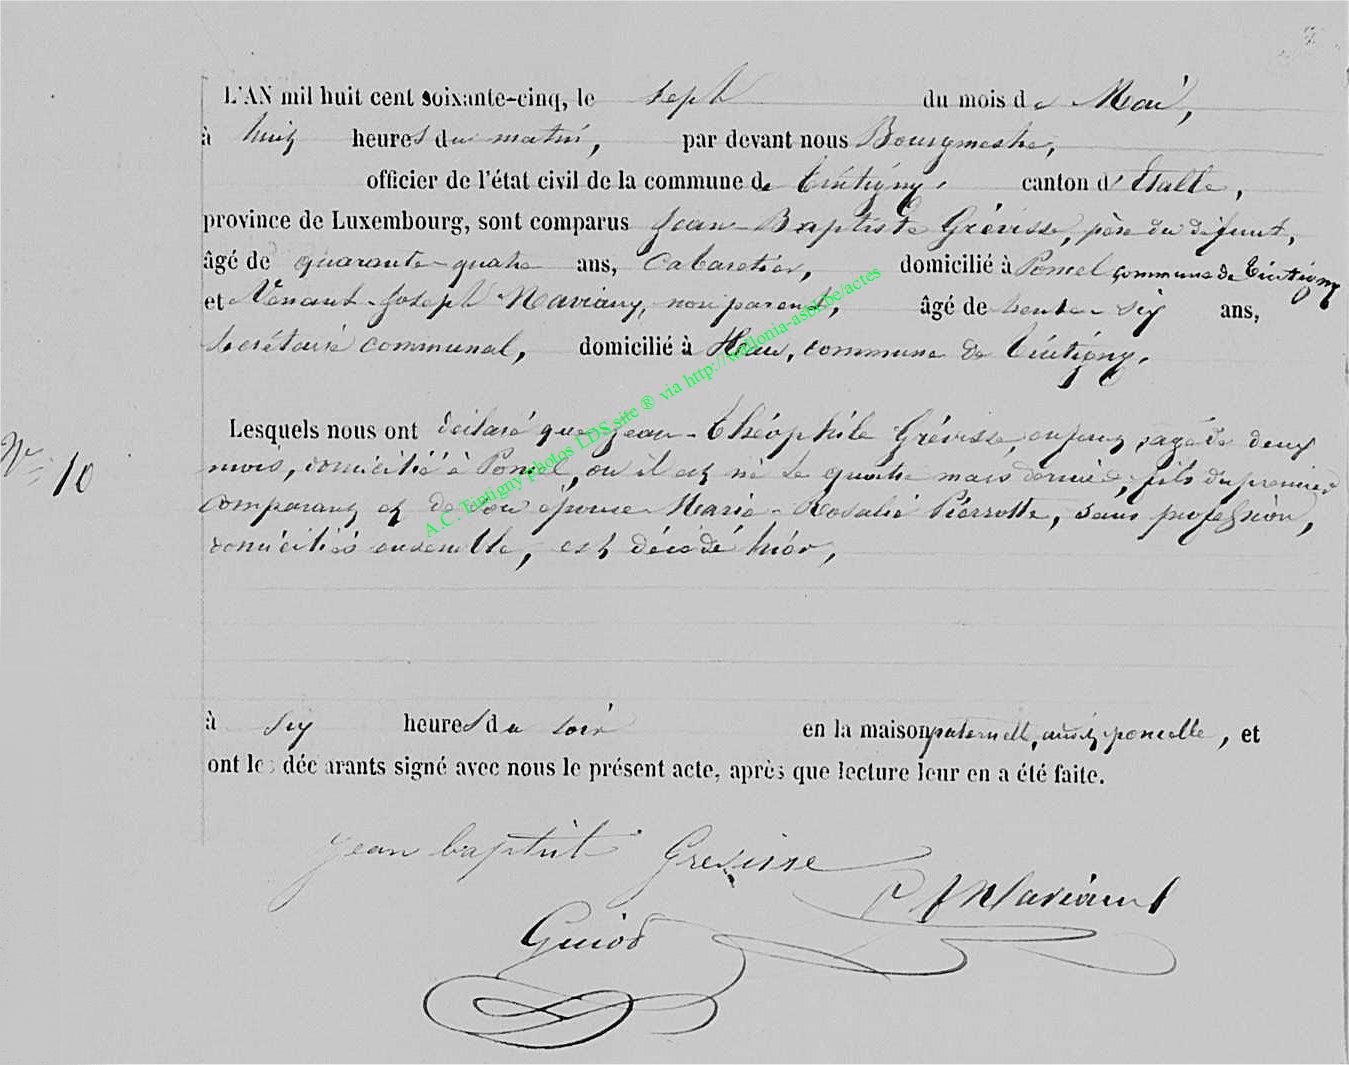 L'AN mil huit cent soixante-cinq, le sept du mois de Mai,
à huit heures du matin, par devant nous Bourgmestre,
officier de l'état civil de la commune de Tintigny, canton d'Etalle,
province de Luxembourg, sont comparus Jean-Baptiste Grévisse, père du défunt,
âgé de quarante-quatre ans, Cabaretier, domicilié à Poncel commune de Tintigny
et Venant-Joseph Maviaux, non parent, âgé de trente-six ans,
Secrétaire communal, domicilié à Han, commune de Tintigny.
Lesquels nous ont déclaré que Jean-Théophile Grévisse, enfant, agé de deux
N° 10
mois, domicilié à Poncel, où il est né le quatre mars dernier, fils du premier
comparant et de son épouse Marie-Rosalie Pierrotte, sans profession,
domiciliés ensemble, est décédé hier,
à six heures du soir en la maison paternelle, audit poncelle, et
ont les déclarants signé avec nous le présent acte, après que lecture leur en a été faite.
jean baptist Grevisse
Guiot
A.C. Tintigny photos LDS site ® via http://wallonia-asbl.be/actes